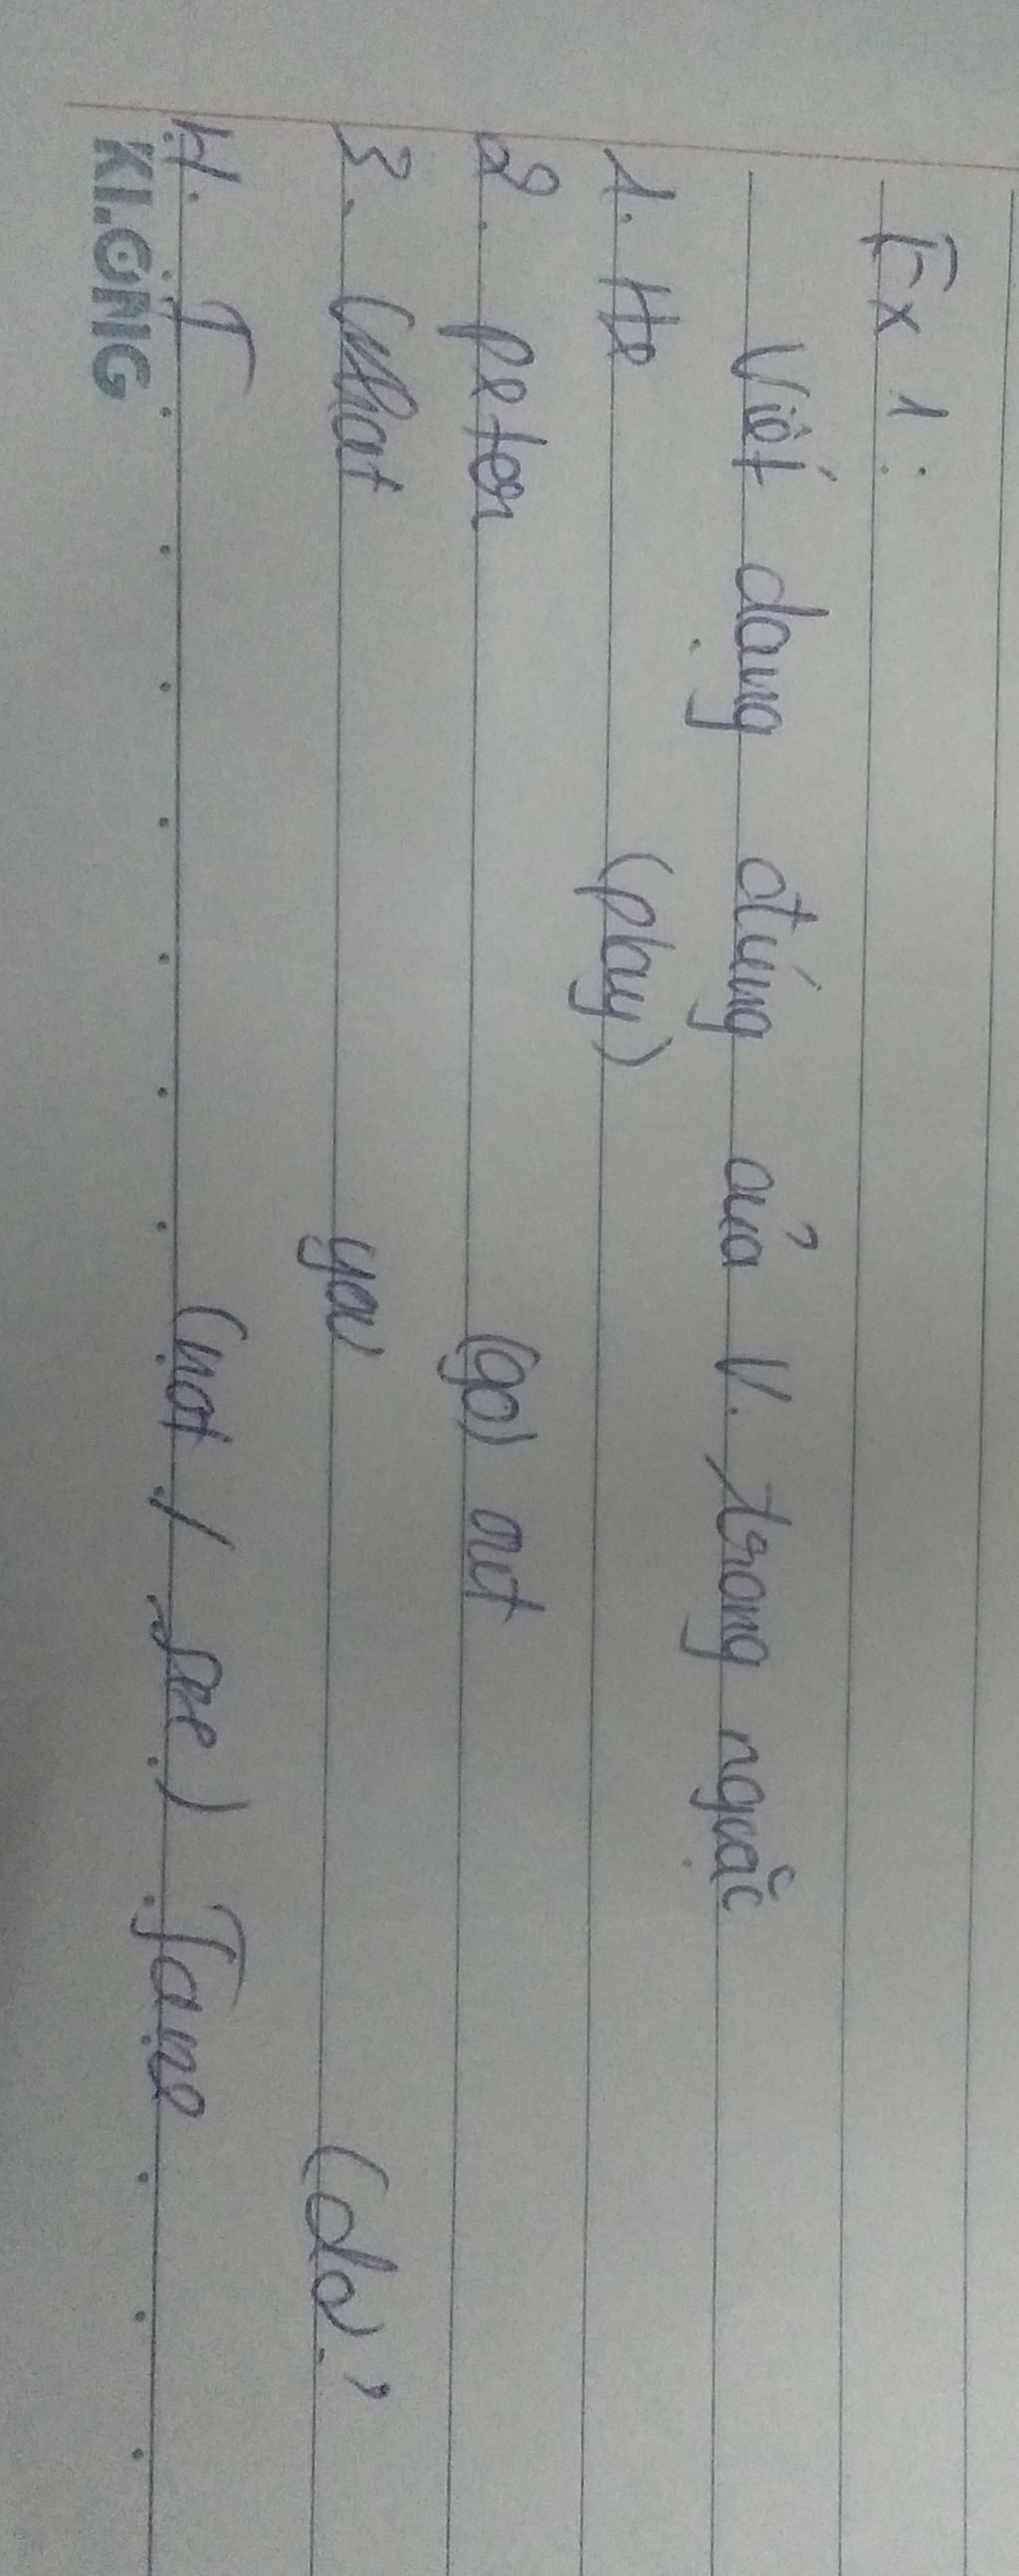 Ex 1:
Viết dạng đúng của V. trong ngoặc
1. He (play)
2. peter (go) out
3. What you (do?
4. I (not / see) Jane
KLONG